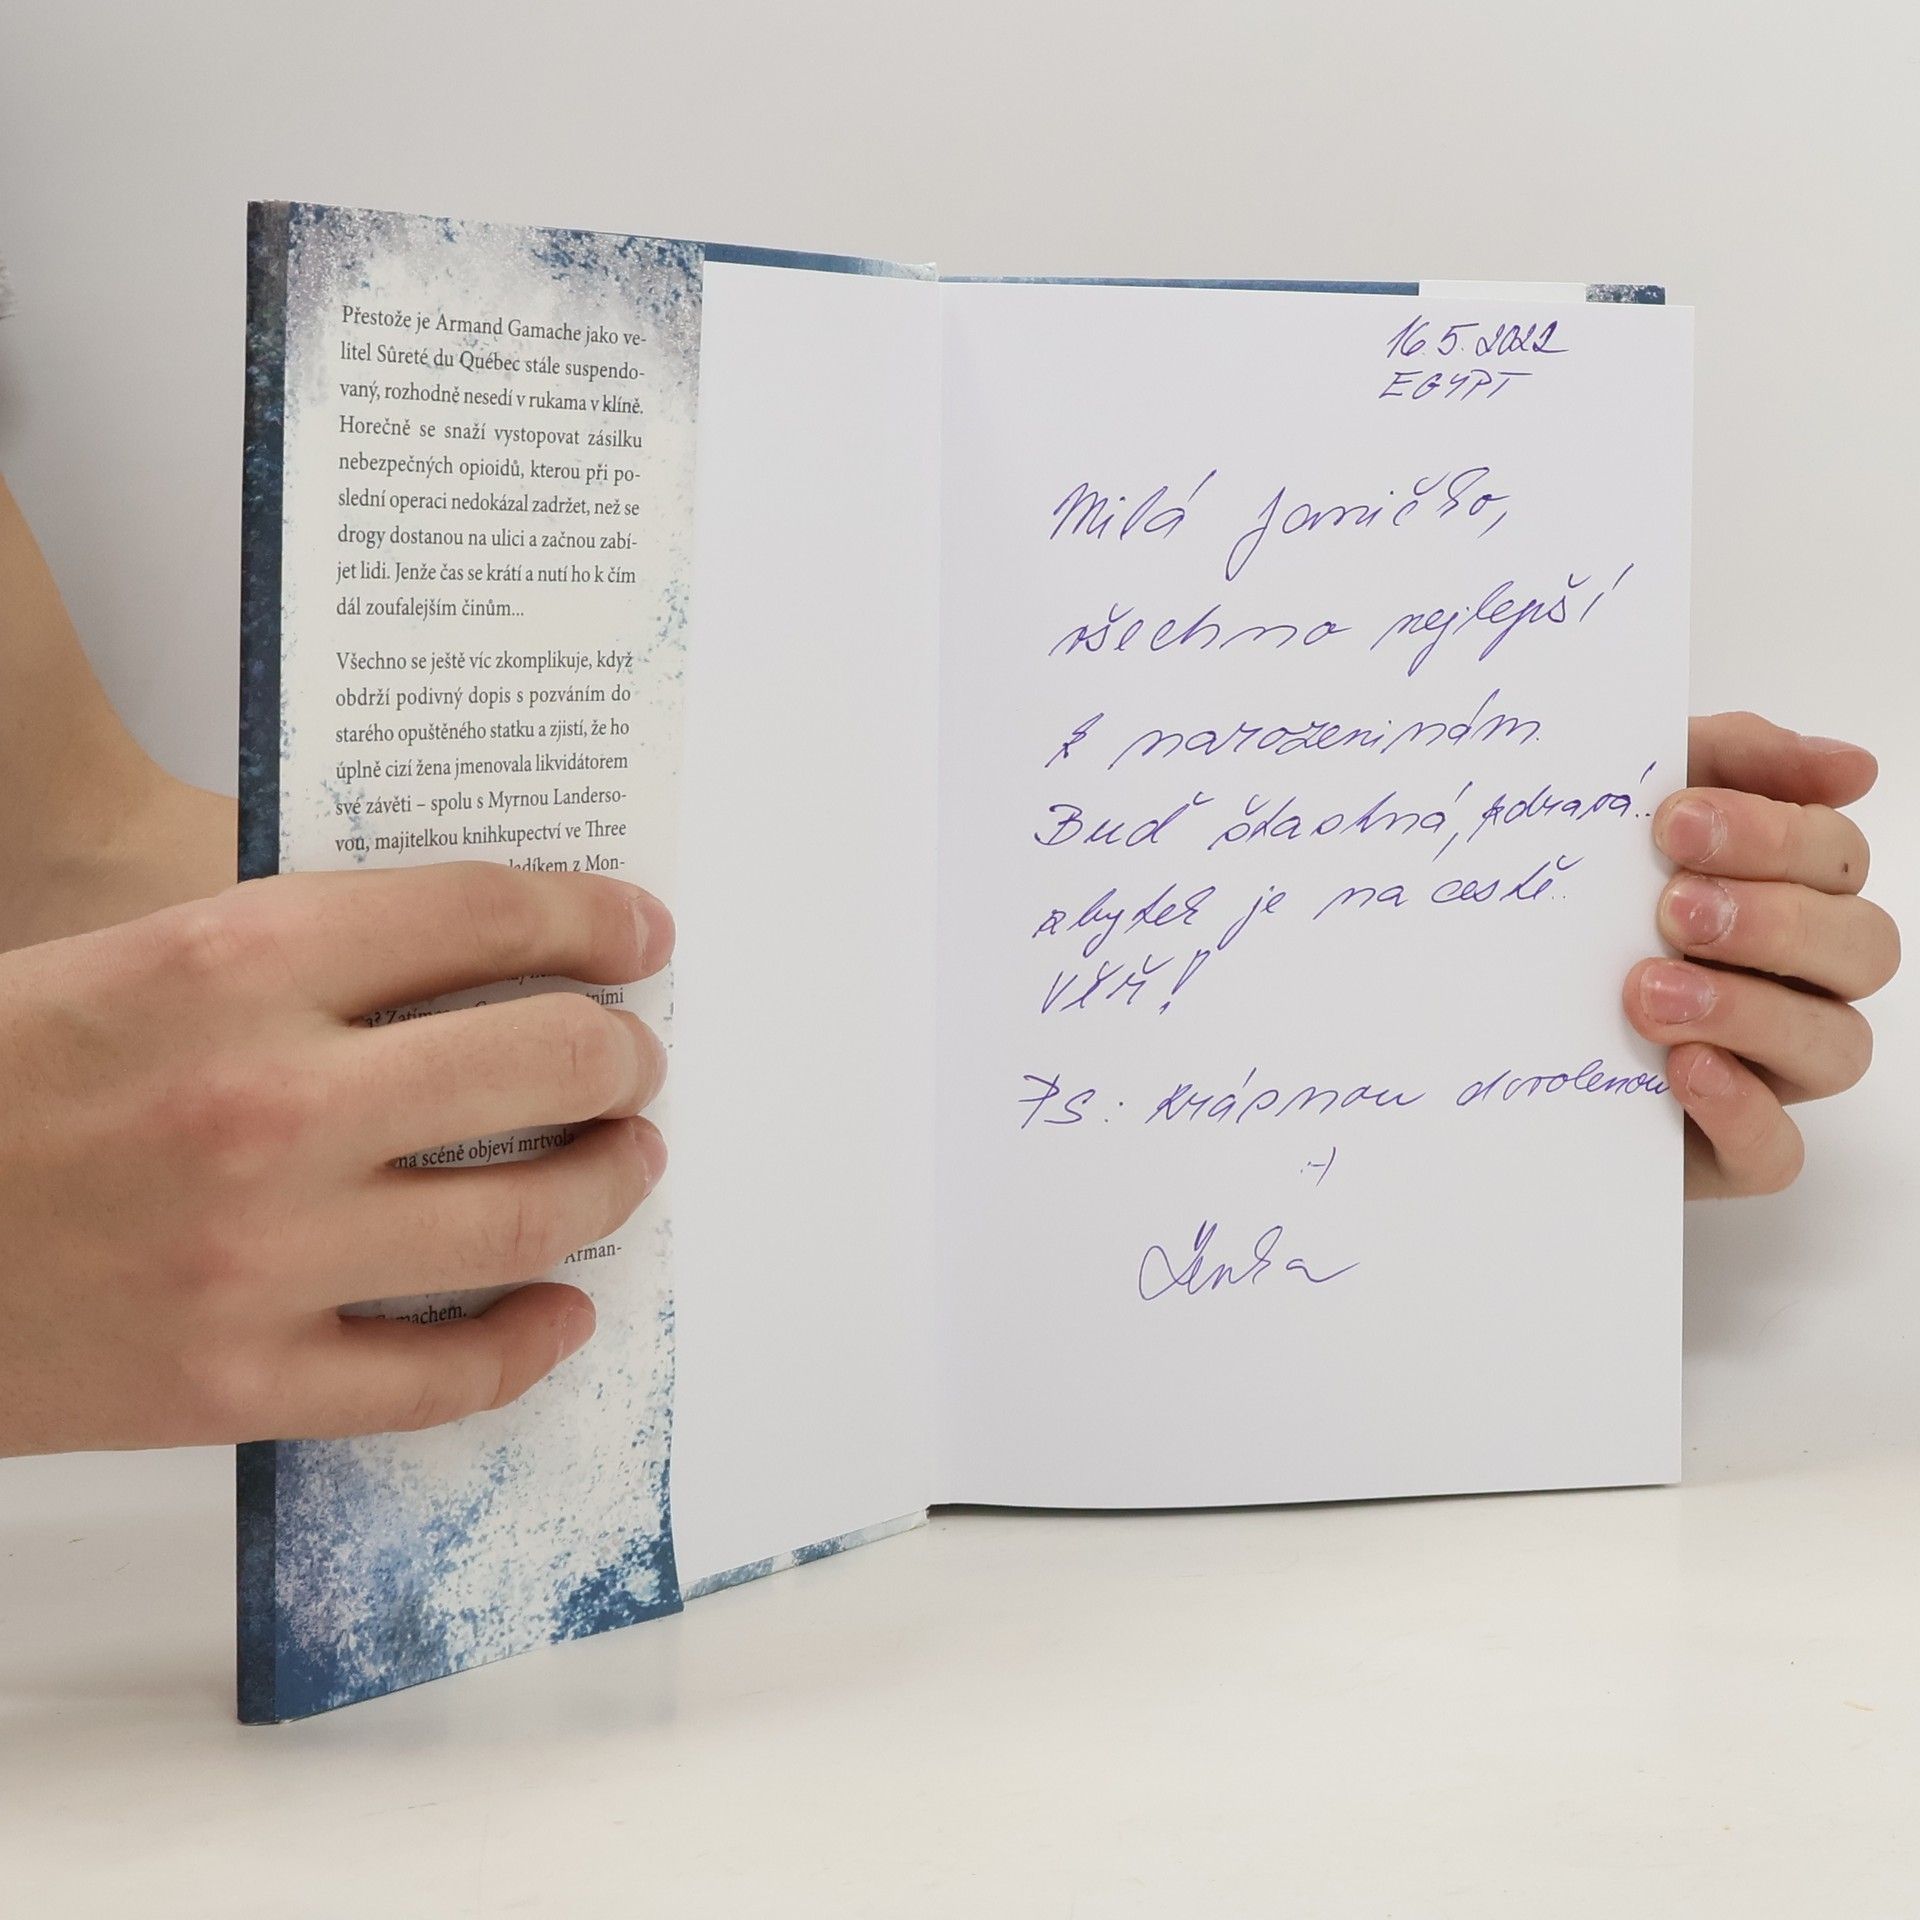 Přestože je Armand Gamache jako ve-
litel Sûreté du Québec stále suspendo-
vaný, rozhodně nesedí v rukama v klíně.
Horečně se snaží vystopovat zásilku
nebezpečných opioidů, kterou při po-
slední operaci nedokázal zadržet, než se
drogy dostanou na ulici a začnou zabí-
jet lidi. Jenže čas se krátí a nutí ho k čím
dál zoufalejším činům...
Všechno se ještě víc zkomplikuje, když
obdrží podivný dopis s pozváním do
starého opuštěného statku a zjistí, že ho
úplně cizí žena jmenovala likvidátorem
své závěti – spolu s Myrnou Landerso-
vou, majitelkou knihkupectví ve Three
ladíkem z Mon-
tními
na scéně objeví mrtvola
Arman-
Gamachem.
16.5.2022
EGYPT
Milá Janičko,
všechno nejlepší
k narozeninám.
Buď šťastná, zdravá..
zbytek je na cestě..
Věř!
PS: krásnou dovolenou
:-)
Lenka